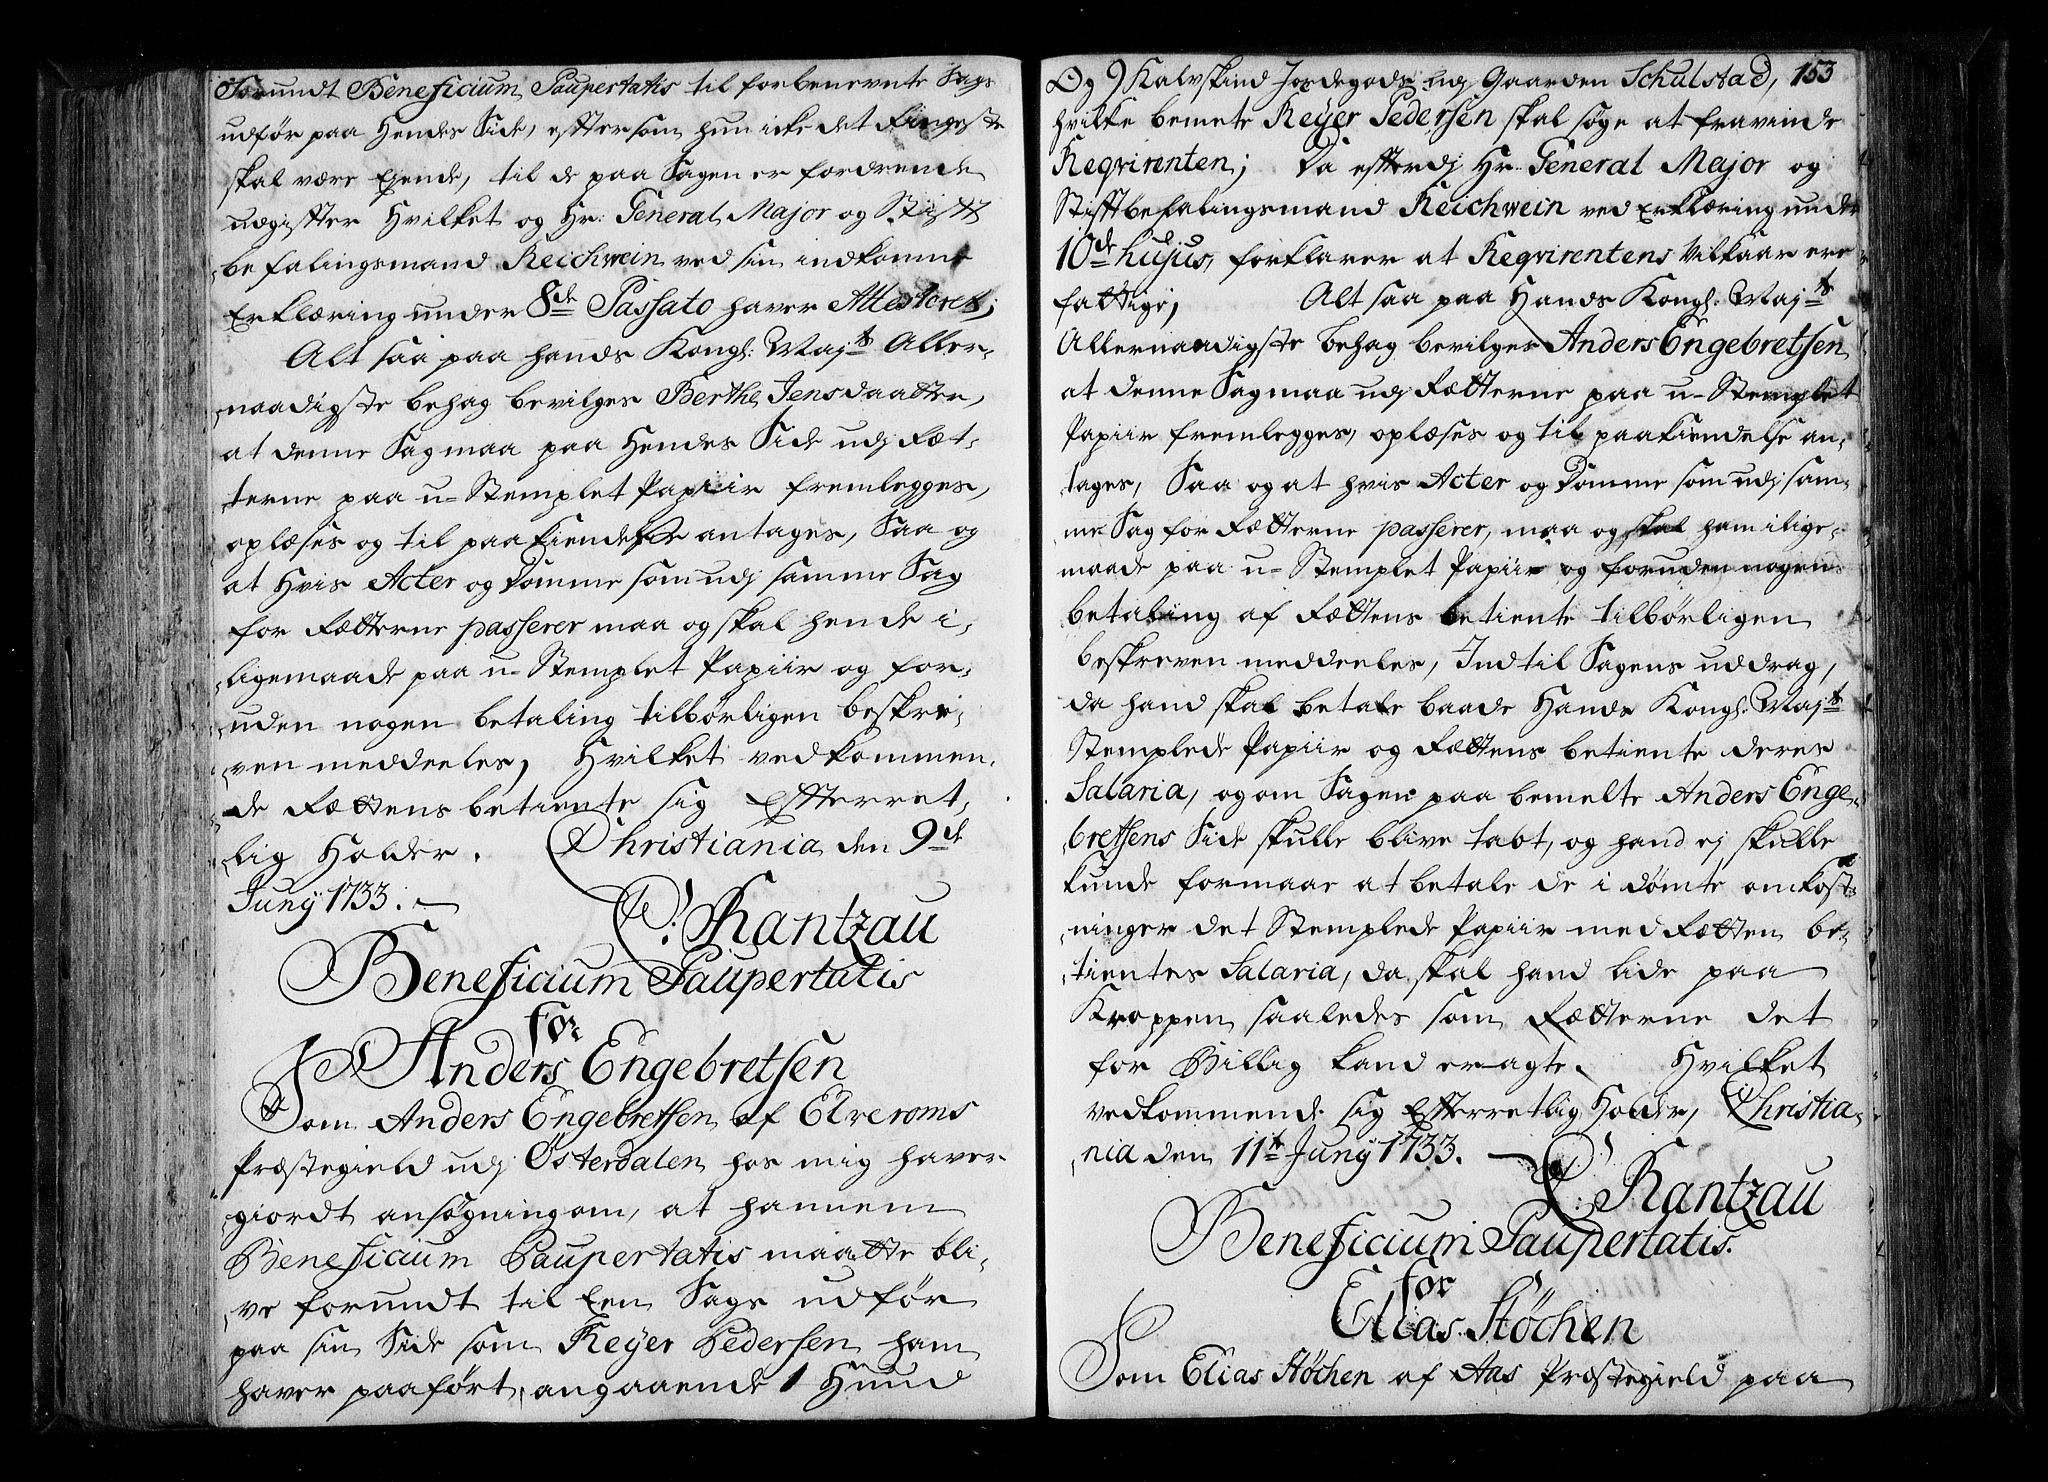 Forundt Beneficium Paupertatis til forbenevnte Sags
udför paa Hendes Side, efftersom hun icke det Ringeste
skal være Ejende, til de paa Sagen erfordrende
udgiffter Hvilket og Hr: General Major og Stifft
befalingsmand Reichwein ved sin indkomne
Erklæring under 8de Passato haver Attesteret;
Alt saa paa hands Kongl: Mayts Aller-
naadigste behag bevilges Berthe Jensdaatter,
at denne Sag maa paa Hendes Side udj Ret-
terne paa u-Stemplet Papiir fremlegges,
oplæses og til paakiendelse antages, Saa og
at Hvis Acter og Domme som udj samme Sag
for Retterne passerer maa og skal hende i-
ligemaade paa u-Stemplet Papiir og for-
uden nogen betaling tilbørligen beskre-
ven meddeeles, Hvilket vedkommen-
de Rettens betiente sig Efterret-
lig Holder. Christiania den 9de
Juny 1733.
C: Rantzau
Beneficium Paupertatis
for
Anders Engebretsen
Som Anders Engebretsen af Elveroms
Præstegield udj Østerdalen hos mig haver
giordt ansøgning om, at hannem
Beneficium Paupertatis maatte bli-
ve forundt til Een Sags udför
paa sin Side som Reyer Pedersen ham
haver paaført, angaaende 1 Hund
Og 9 Kalvskind Jordegods udj Gaarden Schulstad, 153
hvilke bemte Reyer Pedersen skal søge at fravinde
Reqvirenten; Da efterdj Hr. General Major og
Stifftbefalingsmand Reichwein ved Erklæring under
10de hujus, forklarer at Reqvirentens Vilkaar ere
fattige, Alt saa paa Hands Kongl: Mayts
Allernaadigste behag bevilges Anders Engebretsen
at denne Sag maa udj Retterne paa u-Stemplet
Papiir fremlegges, oplæses og til paakiendelse an-
tages, Saa og at hvis Acter og Domme som udj sam-
me Sag for Retterne passerer, maa og skal ham ilige-
maade paa u-Stemplet Papiir og foruden nogen
betaling af Rettens betiente tilbørligen
beskreven meddeeles, Indtil Sagens uddrag,
da hand skal betale baade Hands Kongl. Mayts
Stemplede Papiir og Rettens betiente deres
Salaria, og om Sagen paa bemelte Anders Enge-
bretsens Side skulle blive tabt, og hand ej skulle
kunde formaae at betale de idømte omkost-
ninger det Stemplede Papiir med Retten be-
tientes Salaria, da skal hand lide paa
Kroppen saaledes som Retterne det
for Billig kand eragte. Hvilket
vedkommende sig Efterretlig Holder, Christia-
nia den 11te Juny 1733.
C: Rantzau
Beneficium Paupertatis.
for
Elias Støchen
Som Elias Støchen af Aas Præstegield paa